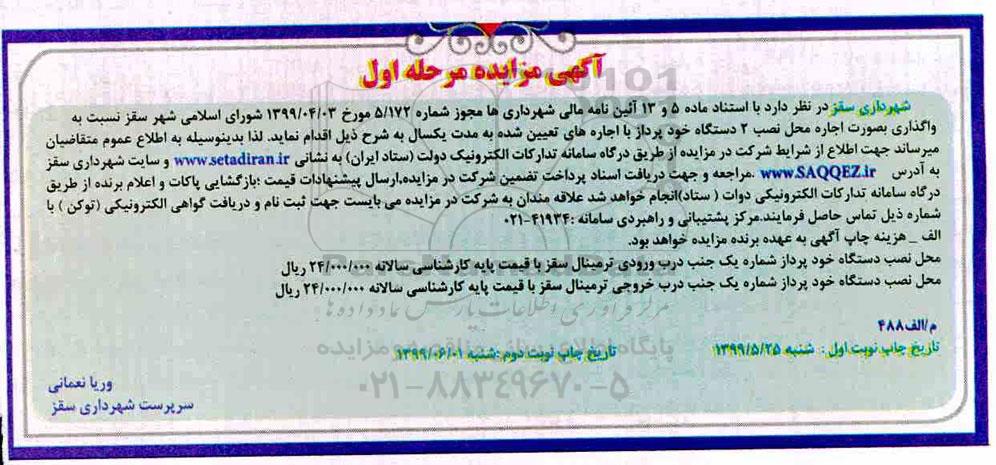 آگهی مزایده مرحله اول
شهرداری سقز در نظر دارد با استناد ماده ۵ و ۱۳ آئین نامه مالی شهرداری ها مجوز شماره ۵/۱۷۲ مورخ ۱۳۹۹/۰۴/۰۳ شورای اسلامی شهر سقز نسبت به
واگذاری بصورت اجاره محل نصب ۲ دستگاه خود پرداز با اجاره های تعیین شده به مدت یکسال به شرح ذیل اقدام نماید. لذا بدینوسیله به اطلاع عموم متقاضیان
میرساند جهت اطلاع از شرایط شرکت در مزایده از طریق درگاه سامانه تدارکات الکترونیک دولت (ستاد ایران) به نشانی www.setadiran.ir و سایت شهرداری سقز
به آدرس www.SAQQEZ.ir .مراجعه و جهت دریافت اسناد پرداخت تضمین شرکت در مزایده،ارسال پیشنهادات قیمت ؛بازگشایی پاکات و اعلام برنده از طریق
درگاه سامانه تدارکات الکترونیکی دوات ( ستاد)انجام خواهد شد علاقه مندان به شرکت در مزایده می بایست جهت ثبت نام و دریافت گواهی الکترونیکی (توکن ) با
شماره ذیل تماس حاصل فرمایند.مرکز پشتیبانی و راهبردی سامانه :۴۱۹۳۴-۰۲۱
الف _ هزینه چاپ آگهی به عهده برنده مزایده خواهد بود.
محل نصب دستگاه خود پرداز شماره یک جنب درب ورودی ترمینال سقز با قیمت پایه کارشناسی سالانه ۲۴/۰۰۰/۰۰۰ ریال
محل نصب دستگاه خود پرداز شماره یک جنب درب خروجی ترمینال سقز با قیمت پایه کارشناسی سالانه ۲۴/۰۰۰/۰۰۰ ریال
مرکز فرآوری اطلاعات پارس نماد داده ها
م/الف۴۸۸
تاریخ چاپ نوبت اول : شنبه ۱۳۹۹/۵/۲۵ تاریخ چاپ نوبت دوم :شنبه ۱۳۹۹/۰۶/۰۱
پایگاه اطلاع رسانی مناقصه و مزایده
۰۲۱-۸۸۳۴۹۶۷۰-۵
وریا نعمانی
سرپرست شهرداری سقز